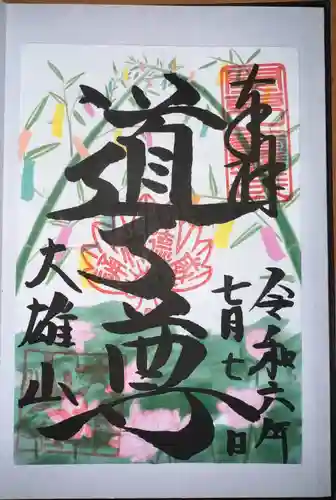 奉拝
令和六年
七月七日
道了尊
大雄山